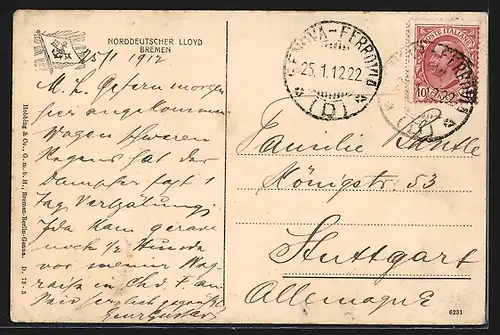 NORDDEUTSCHER LLOYD
BREMEN
25/1 1912
M. L. Gestern morgen
hier angekommen.
Wegen schweren
Regens hat der
Dampfer fast 1
Tag Verspätung.
Ida kam gerade
noch 1/2 Stunde
vor meiner
herzlich gegrüßt
GENOVA-FERROVIA
25.1.12.22
(D)
POSTE ITALIANE
10
Familie Bantle
Königstr. 53
Stuttgart
Allemagne
Hobbing & Co., G. m. b. H., Bremen-Berlin-Genua. D. 73-3
6231